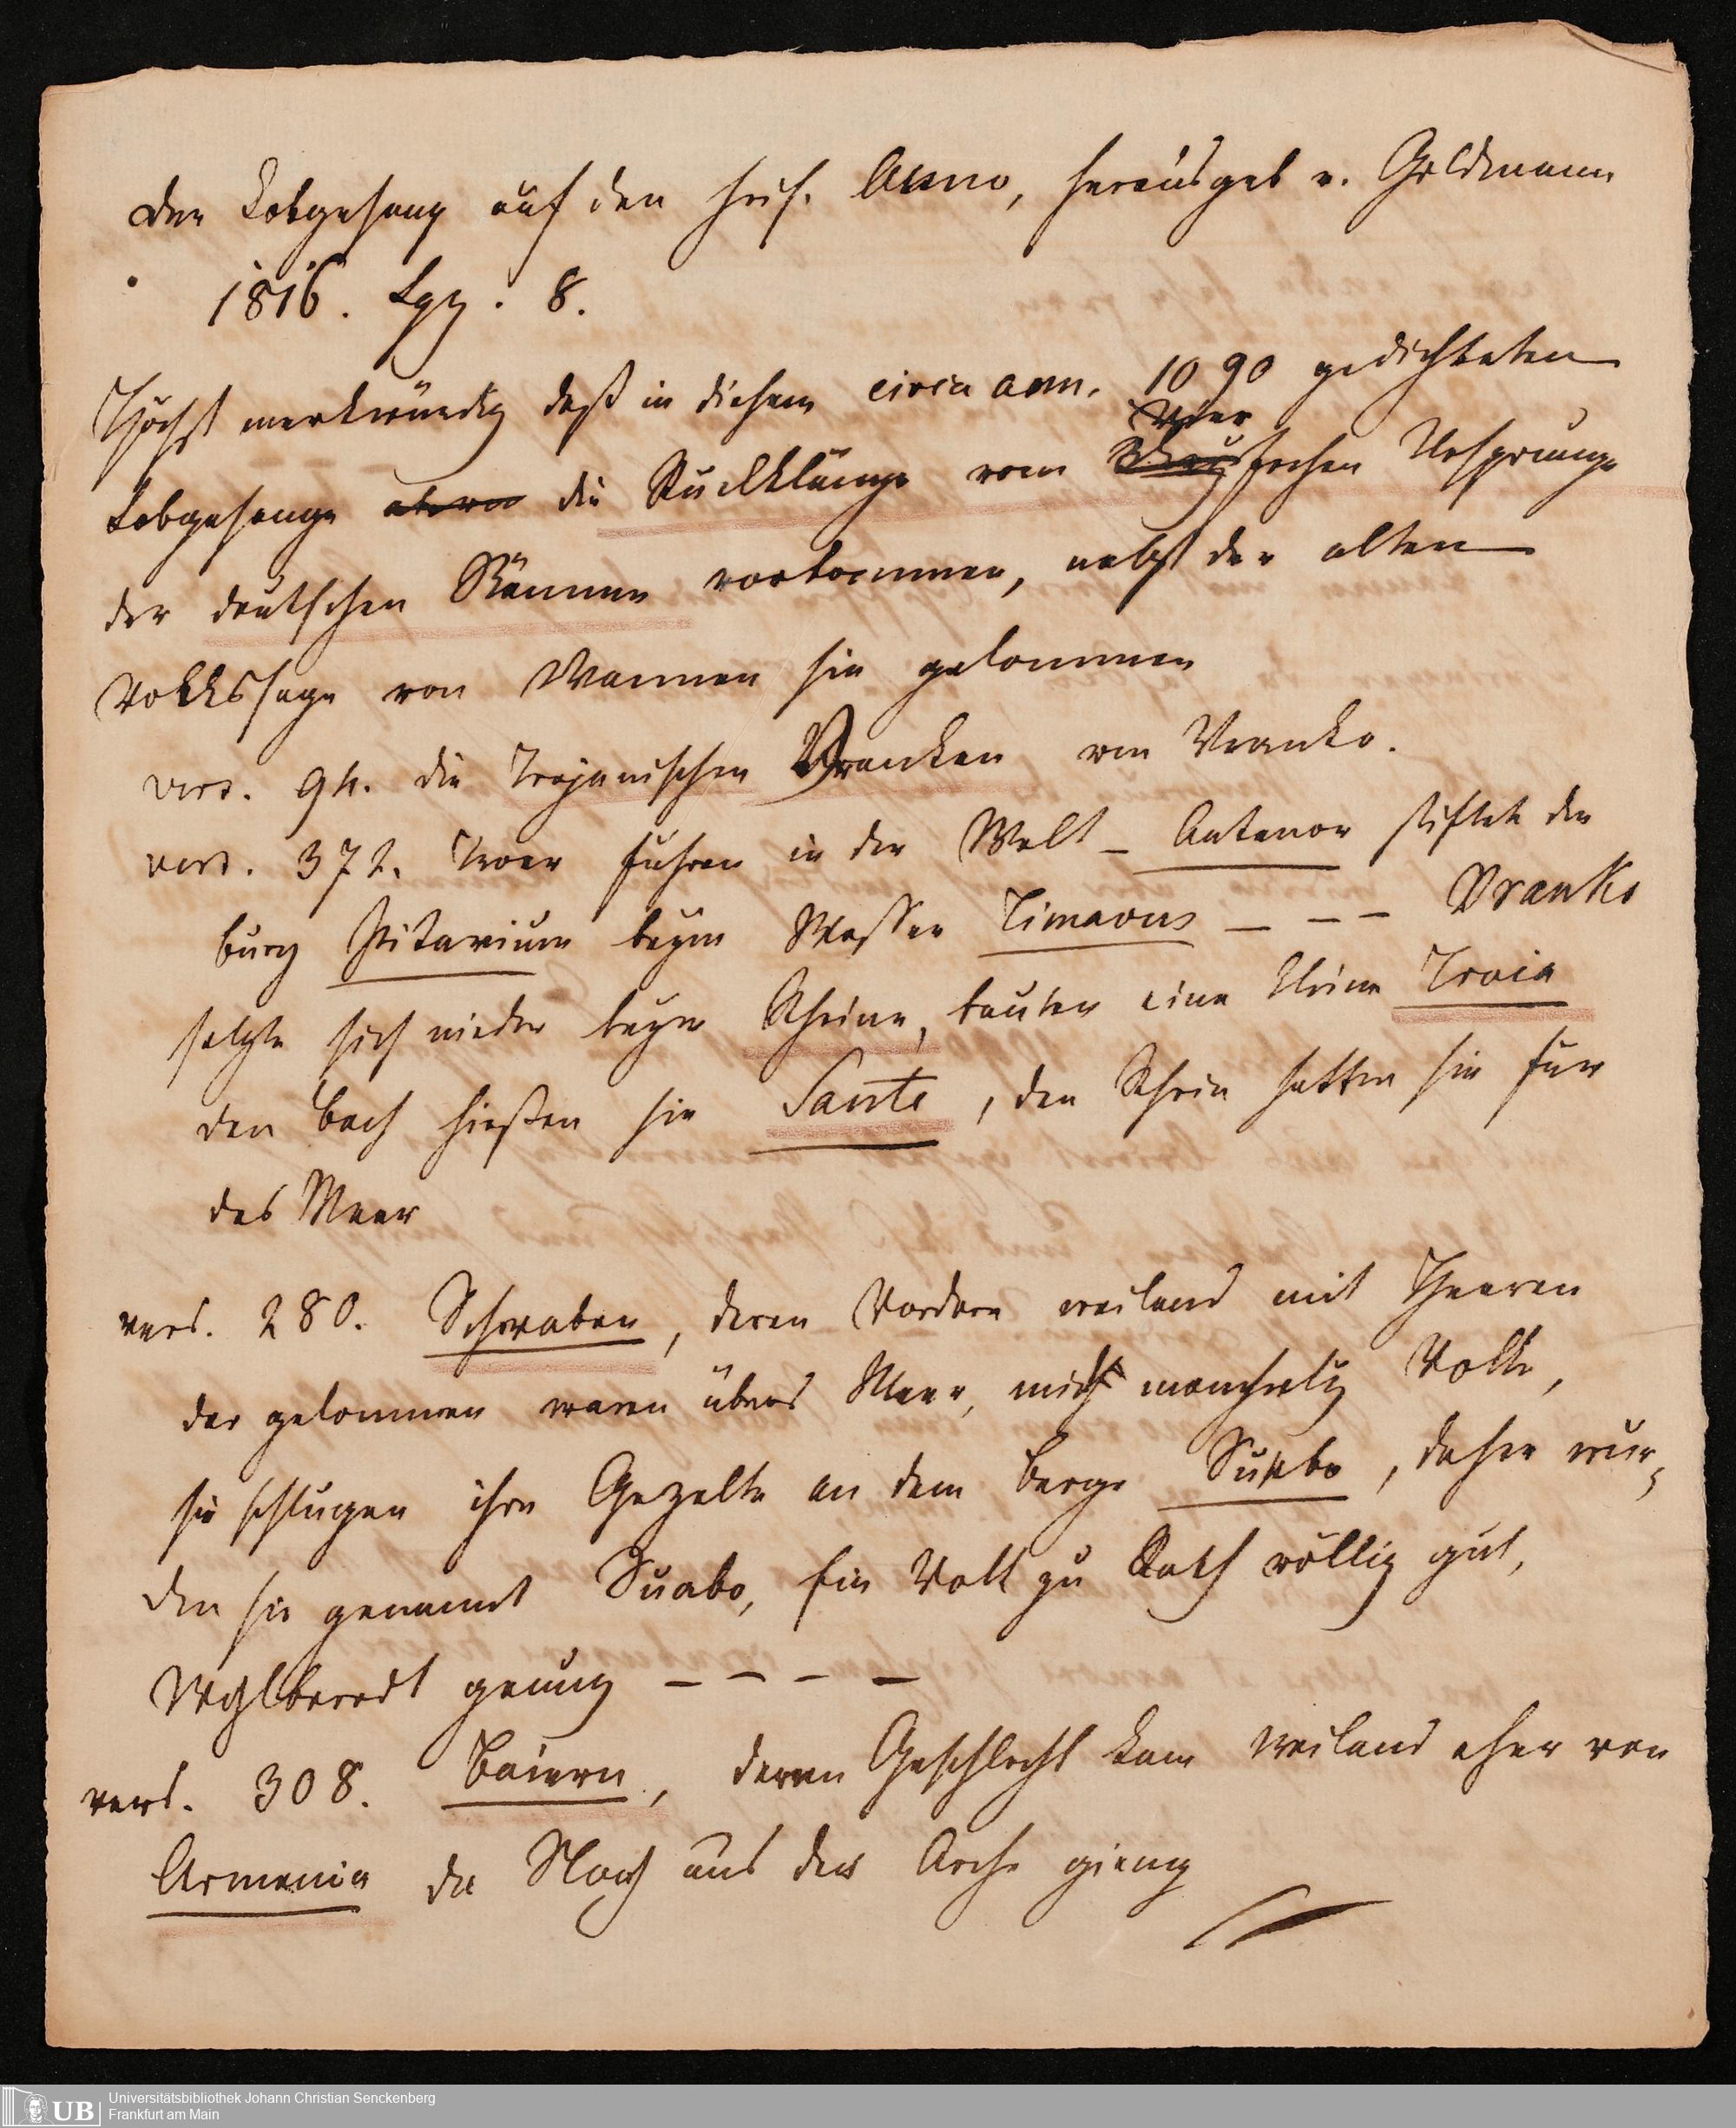 Der Lobgesang auf den heil. Anno, herausgeb v. Goldmann
1816. Lpz. 8.
Höchst merkwürdig daß in diesem circa ann. 1090 gedichteten
Lobgesange die Rückklänge vom Ursprunge
der deutschen Stämme vorkommen, nebst der alten
Volkssage von Wannen sie gekommen
vers. 94. die Trojanischen Vranken von Vranko.
vers. 372. Troer fuhren in der Welt – Antenor stiftete die
burg Pitavium beym Wasser Timavus – – – Vranko
setzte sich nieder beym Rheine, bauten eine kleine Troia
den bach hießen sie Sante, den Rhein hatten sie für
das Meer
vers. 280. Schwaben, deren Vordern weiland mit Heeren
dar gekommen waren übers Meer, mit Volke,
sie schlugen ihre Gezelte an dem berge Suebo, daher wur-
den sie genannt Suabo, Ein Volk zu Rath völlig gut,
Wohlberedt genug – – – –
vers. 308. Baiern, deren Geschlecht kam weiland eher von
Armenia da Noah aus der Arche gieng
UB
Universitätsbibliothek Johann Christian Senckenberg
Frankfurt am Main